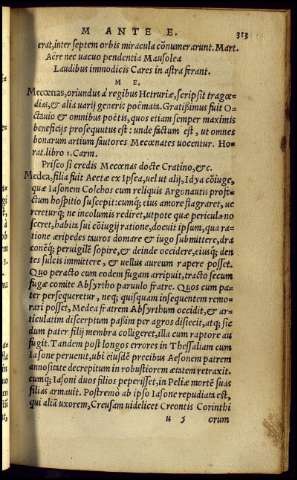 M ANTE E. 313
erat, inter septem orbis miracula cōnumerarunt. Mart.
Aëre nec vacuo pendentia Mausolea
Laudibus immodicis Cares in astra ferant.
M E.
Mecœnas, oriundus à regibus Hetruriæ, scripsit tragœ-
dias, & alia varij generis poëmata. Gratissimus fuit O-
ctauio & omnibus poëtis, quos etiam semper maximis
beneficijs prosequutus est: unde factum est, ut omnes
bonarum artium fautores Mecœnates uocentur. Ho-
rat. libro 1. Carm.
Prisco si credis Mecœnas docte Cratino, &c.
Medea, filia fuit Aeetæ ex Ipsea, uel ut alij, Idya cōiuge,
quæ Iasonem Colchos cum reliquis Argonautis profe-
ctum hospitio suscepit: cumq; eius amore flagraret, ue
reretur q; ne incolumis rediret, utpote quæ pericula no
sceret, habita sui cōiugij ratione, docuit ipsum, qua ra-
tione æripedes tauros domare & iugo submittere, dra
conēq; peruigilē sopire, & deinde occidere, eiusq; den
tes sulcis immittere, & uellus aureum rapere posset.
Quo peracto cum eodem fugam arripuit, tracto secum
fugæ comite Absyrtho paruulo fratre. Quos cum pa-
ter persequeretur, neq; quisquam insequentem remo-
rari posset, Medea fratrem Absyrthum occidit, & ar-
ticulatim discerptum passim per agros disiecit, atq; sic
dum pater filij membra colligeret, illa cum raptore au
fugit. Tandem post longos errores in Thessaliam cum
Iasone peruenit, ubi eiusdē precibus Aesonem patrem
annositate decrepitum in robustiorem ætatem retraxit.
cumq; Iasoni duos filios peperisset, in Peliæ mortē suas
filias armauit. Postremo ab ipso Iasone repudiata est,
qui aliā uxorem, Creusam uidelicet Creontis Corinthi
u 5 orum